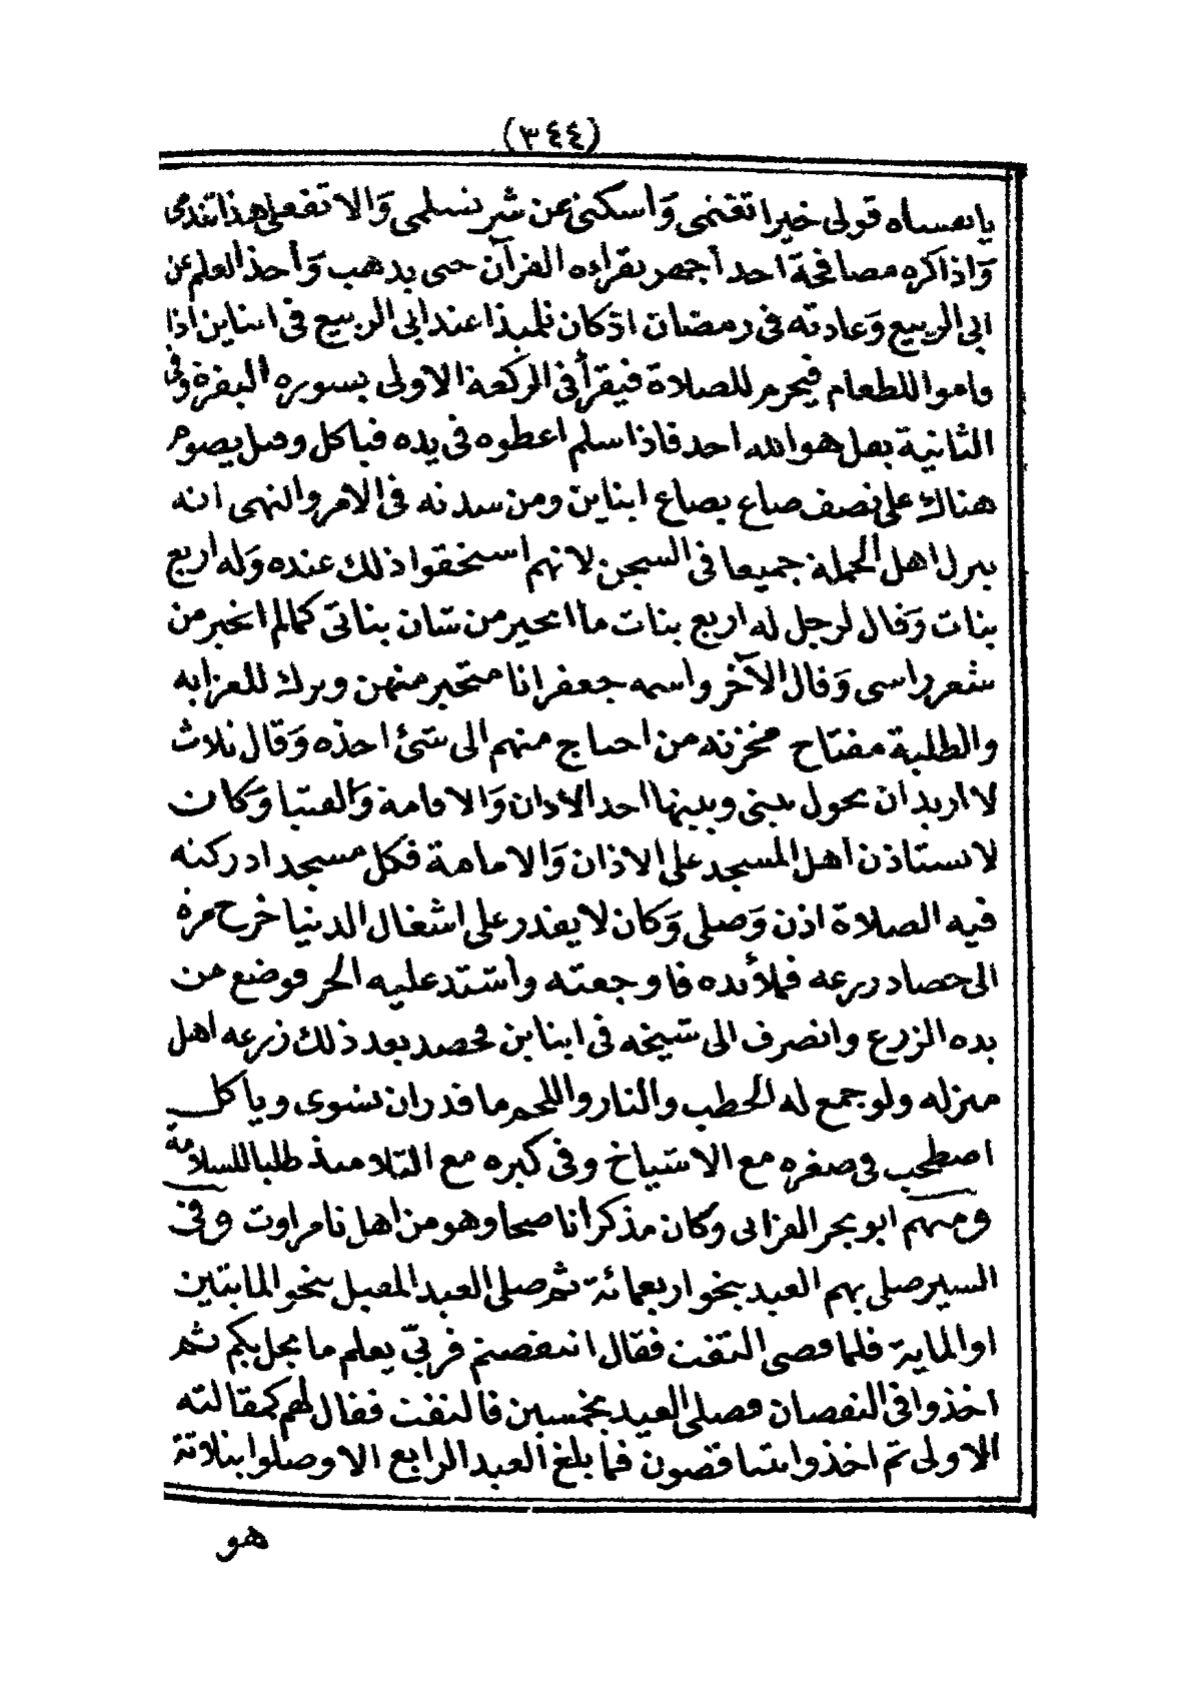 (٣٤٤)
يا نفساه قولى خيرا تغنمى وَاسكتى عن شر تسلمى وَالا تفعلى هذا تندمى
وَاذا كره مصافحة احد أجهر بقراءه القرآن حتى يذهب وَأخذ العلم عن
ابى الربيع وَعادته فى رمضان اذ كان تلميذا عند ابى الربيع فى ابناين اذا
قاموا للطعام فيحرم للصلاة فيقرأ فى الركعة الاولى بسوره البقرة وفى
الثانية بقل هو الله احد فاذا سلم اعطوه فى يده فياكل وقيل يصوم
هناك على نصف صاع بصاع ابناين ومن سدته فى الامر والنهى انه
يترل اهل الحملة جميعا فى السجن لانهم استحقوا ذلك عنده وَله اربع
بنات وَقال لرجل له اربع بنات ما اتحير من شان بناتى كما لم اتحير من
شعر راسى وَقال الآخر واسمه جعفر انا متحير منهن وترك للعزابه
والطلبة مفتاح مخزنه من احتاج منهم الى شئ اخذه وَقال ثلاث
لا اريد ان يحول بينى وبينها احد الاذان وَالاقامة وَالفتيا وَكان
لا نستاذن اهل المسجد على الاذان وَالاقامة فكل مسجد ادركته
فيه الصلاة اذن وَصلى وَكان لا يقدر على اشغال الدنيا خرج مرة
الى حصاد زرعه فملأ يده فاوجعته واشتد عليه الحر فوضع من
يده الزرع وانصرف الى شيخه فى ابناين فحصد بعد ذلك زرعه اهل
منزله ولو جمع له الحطب والنار واللحم ما قدر ان يشوى وياكل
اصطحب فى صغره مع الاشياخ وفى كبره مع التلاميذ طلبا للسلامة
ومنهم ابو بحر الفزانى وكان مذكرا ناصحا وهو من اهل تامراوت وفى
السير صلى بهم العيد بنحو اربعمائة ثم صلى العيد المقبل بنحو المايتين
او الماية فلما قضى التفت فقال انتقصتم فربىّ يعلم ما يجل بكم ثم
اخذوا فى النقصان فصلى العيد بخمسين فالتفت فقال لهم كمقالته
الاولى ثم اخذوا يتناقصون فما بلغ العيد الرابع الا وصلوا بثلاثة
هو